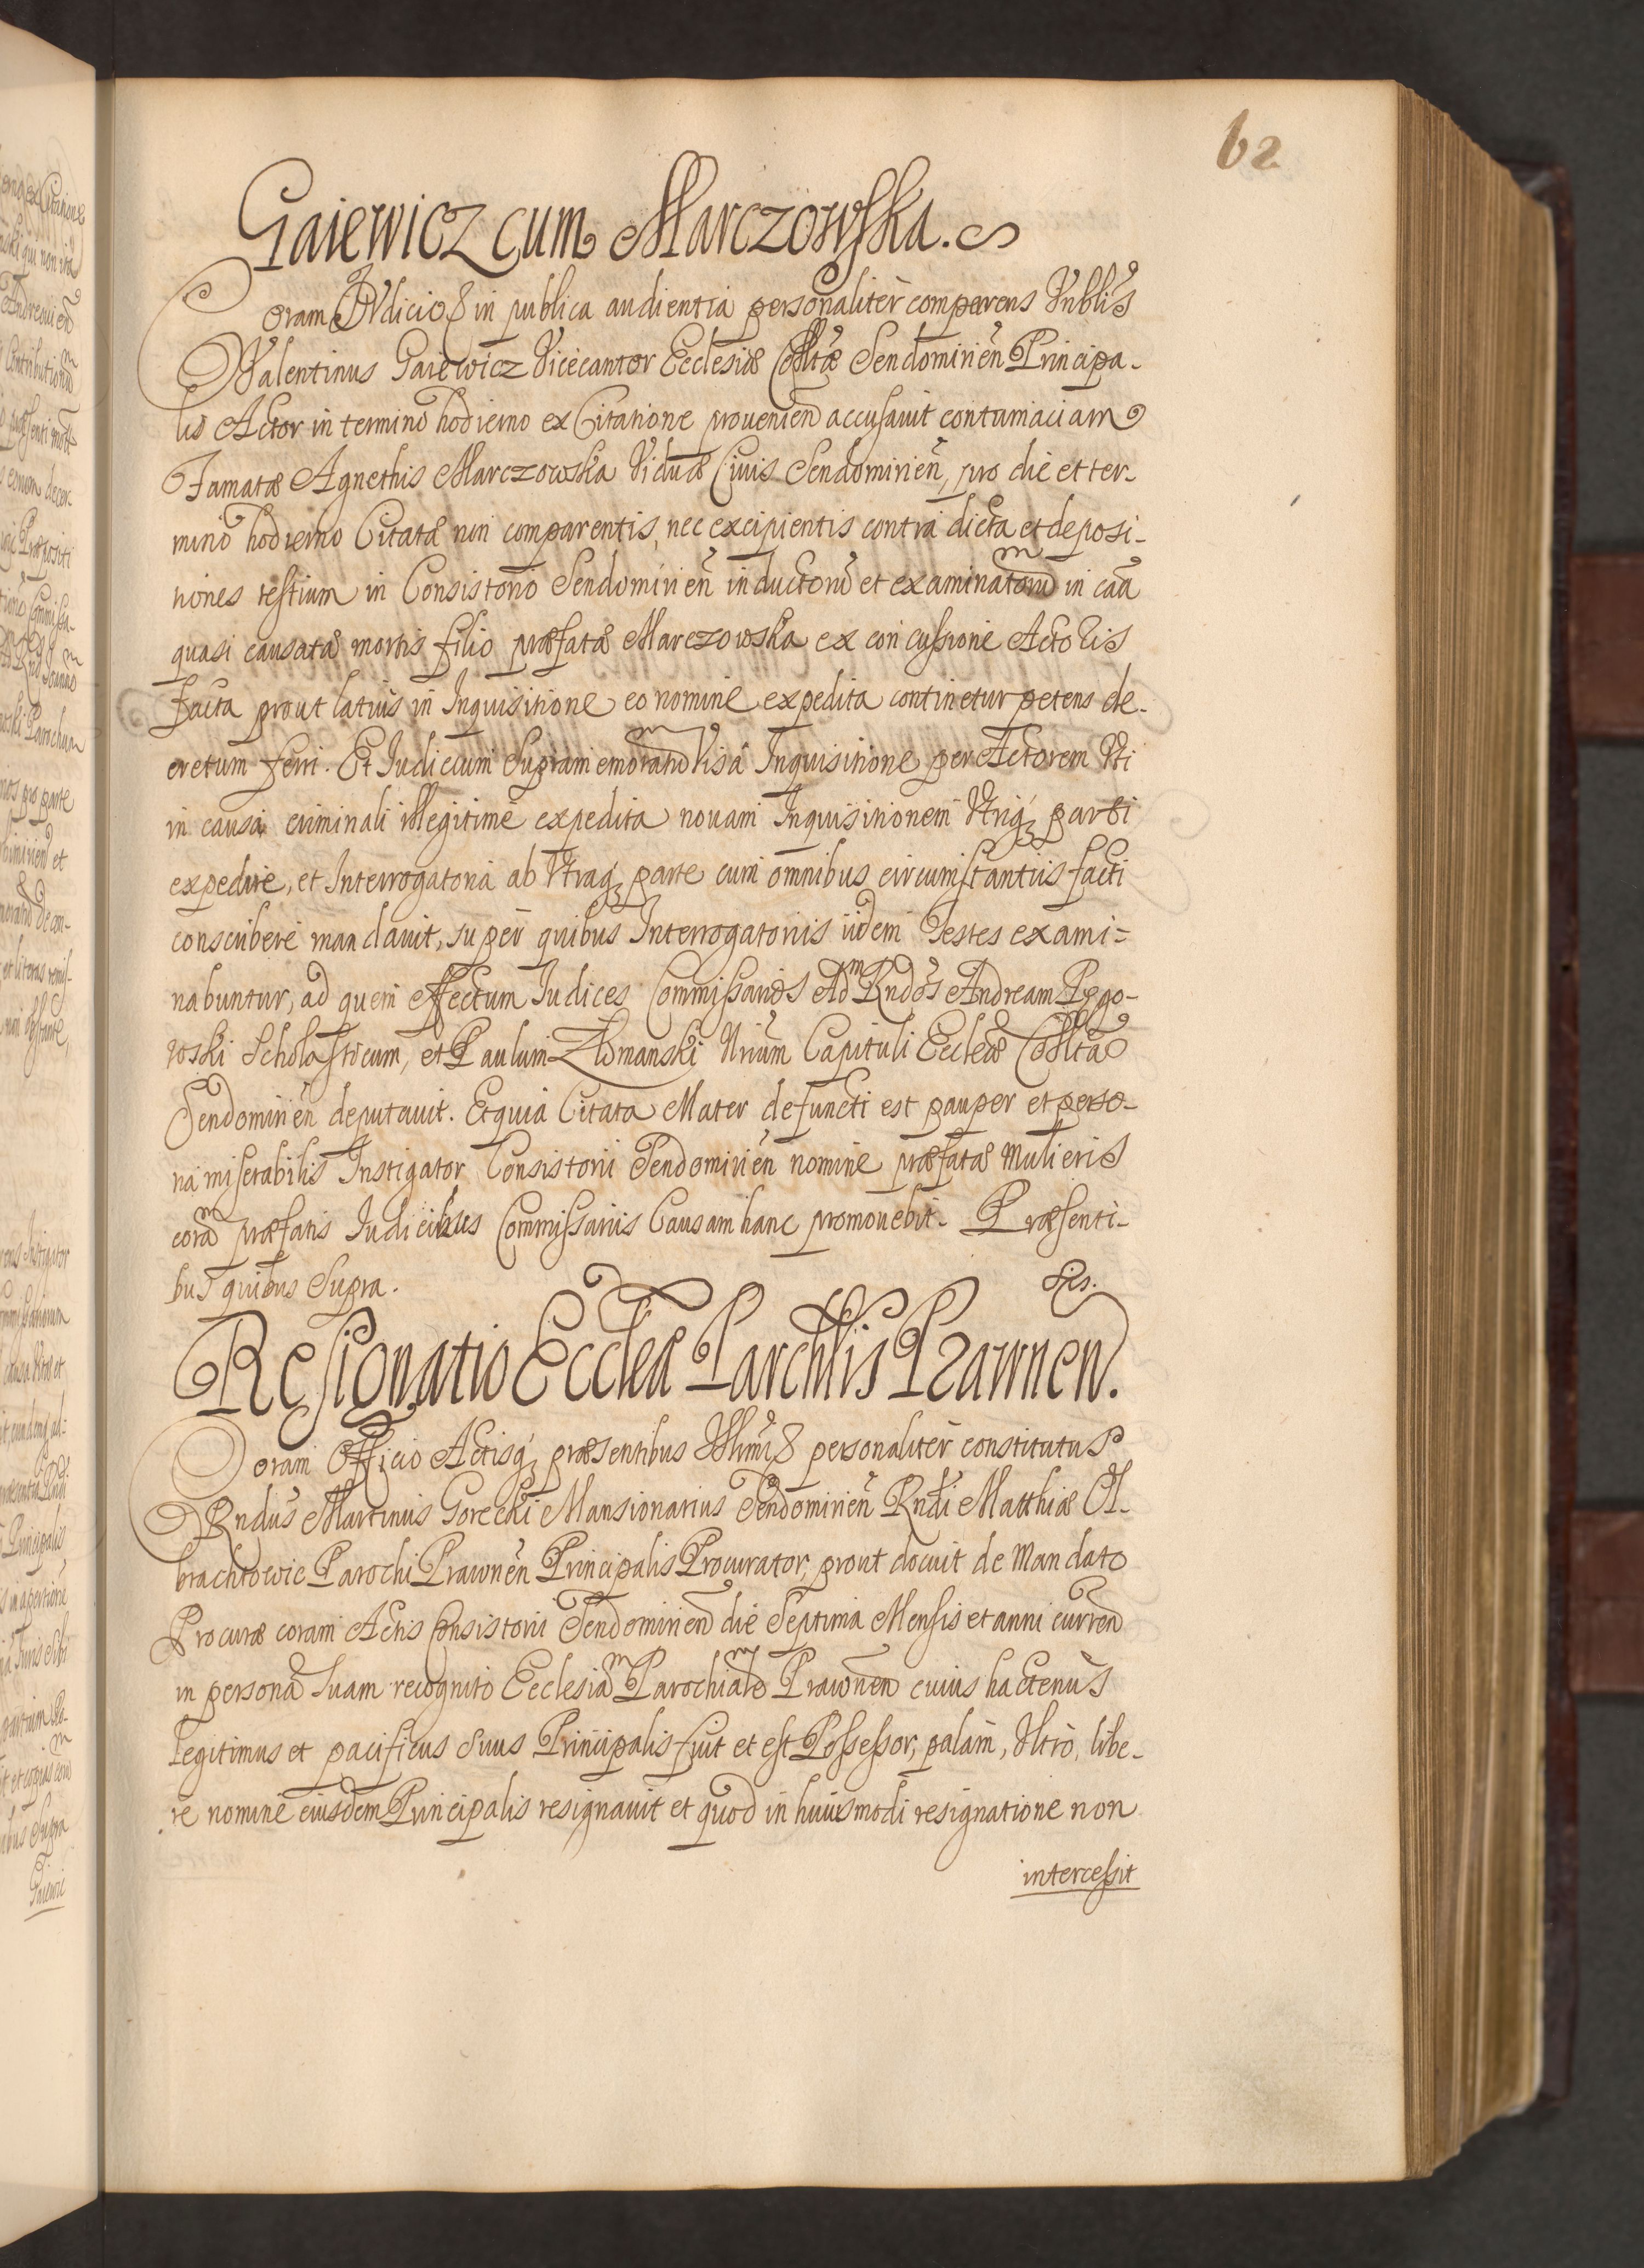 62
Gaiewicz cum Marczowska.
Coram Iudicio & in publica audientia personalitèr comparens Vnblis
Valentinus Gaiewicz Vicecantor Ecclesiæ Collttæ Sendomirien̄ Principa-
lis Actor in termino hodierno ex Citatione prouenien̄ accusauit contumaciam
Famatæ Agnethis Marczowska Viduæ Ciuis Sendomirien̄, pro die et ter-
mino hodierno Citatæ non comparentis, nec excipientis contra dicta et deposi-
tiones testium in Consistorio Sendomirien̄ inductorū et examinatorum in caā
quasi causatæ mortis filio præfatæ Marczowska ex concussione Actoris
facta prout latius in Inquisitione eo nomine expedita continetur petens de-
cretum ferri. Et Iudicium Supramemoratum Visa Inquisitione per Actorem Vti
in causa criminali illegitime expedita nouam Inquisitionem Vtriq; parti
expedire, et Interrogatoria ab Vtraq; parte cum omnibus circumstantiis facti
conscribere mandauit, super quibus Interrogatoriis iidem Testes exami-
nabuntur, ad quem effectum Iudices Commissarios Adm Rndos Andream Rego-
wski Scholasticum, et Paulum Zlomanski Vrium Capituli Eccleæ Collttæ
Sendomirien̄ deputauit. Et quia Citata Mater defuncti est pauper et perso-
na miserabilis Instigator Consistorii Sendomirien̄ nomine præfatæ Mulieris
coram præfatis Iudicibus Commissariis Causam hanc promouebit. Præsenti-
bus quibus Supra.
Resignatio Ecclea Parchlis Prawnen.
Coram Officio Actisq; præsentibus & personalitèr constitutus
Rndus Martinus Gorecki Mansionarius Sendomirien̄ Rndi Matthiæ Ol-
brachtowic Parochi Prawnen̄ Principalis Procurator, prout docuit de Mandato
Procuræ coram Actis Consistorii Sendomirien̄ die Septima Mensis et anni curren̄
in personā suam recognito Ecclesiam Parochialem Prawnen̄ cuius hactenus
legitimus et pacificus suus Principalis fuit et est Possessor, palam, Vltrò, libe-
re nomine eiusdem Principalis resignauit et quod in huiusmodi resignatione non
intercessit